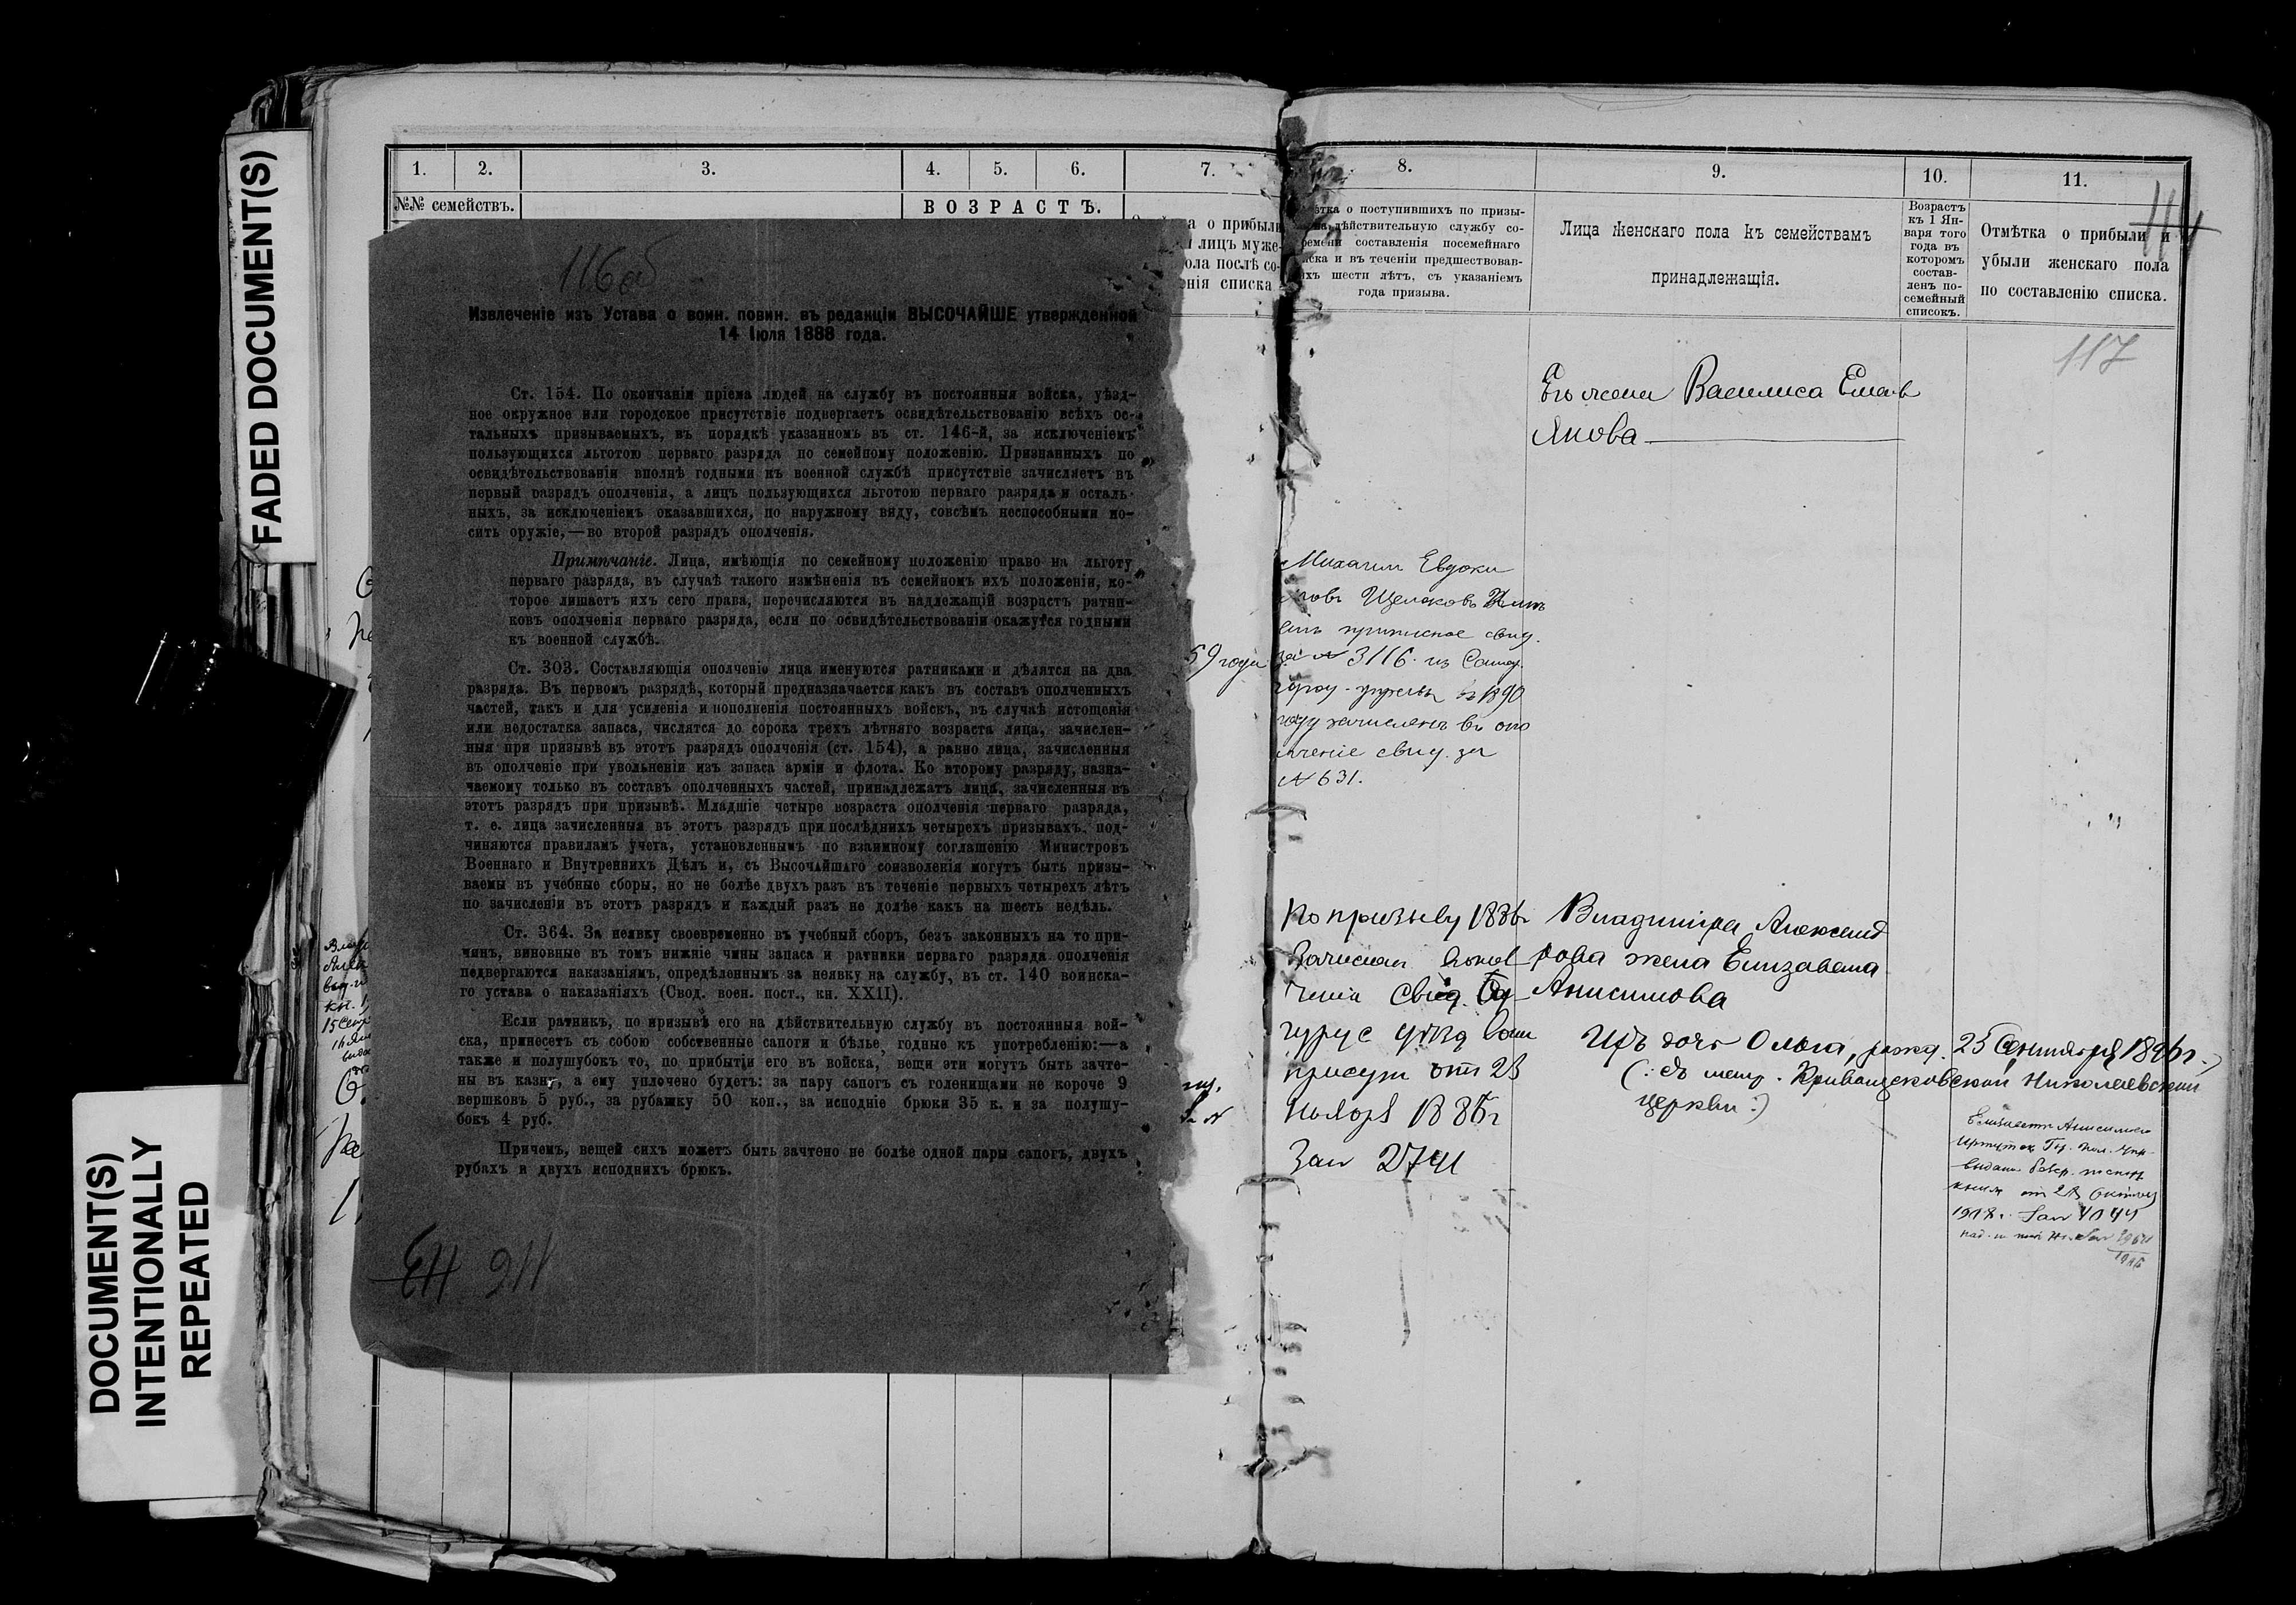 FADED DOCUMENT(S)
DOCUMENT(S)
INTENTIONALLY
REPEATED
1. 2. 3. 4. 5. 6. 7.
№№ семействъ.
ВОЗРАСТЪ.
а о прибыли
лицъ муже-
ола послѣ со-
енія списка
116об
Извлеченіе изъ Устава о воин. повин. въ редакціи ВЫСОЧАЙШЕ утвержденной
14 Іюля 1888 года.
Ст. 154. По окончаніи пріема людей на службу въ постоянныя войска, уѣзд-
ное окружное или городское присутствіе подвергаетъ освидѣтельствованію всѣхъ ос-
тальныхъ призываемыхъ, въ порядкѣ указанномъ въ ст. 146-й, за исключеніемъ
пользующихся льготою перваго разряда по семейному положенію. Признанныхъ по
освидѣтельствованіи вполнѣ годными къ военной службѣ присутствіе зачисляетъ въ
первый разрядъ ополченія, а лицъ пользующихся льготою перваго разряда и осталь-
ныхъ, за исключеніемъ оказавшихся, по наружному виду, совсѣмъ неспособными но-
сить оружіе,—во второй разрядъ ополченія.
Примѣчаніе. Лица, имѣющія по семейному положенію право на льготу
перваго разряда, въ случаѣ такого измѣненія въ семейномъ ихъ положеніи, ко-
торое лишаетъ ихъ сего права, перечисляются въ надлежащій возрастъ ратни-
ковъ ополченія перваго разряда, если по освидѣтельствованіи окажутся годными
къ военной службѣ.
Ст. 303. Составляющія ополченіе лица именуются ратниками и дѣлятся на два
разряда. Въ первомъ разрядѣ, который предназначается какъ въ составъ ополченныхъ
частей, такъ и для усиленія и пополненія постоянныхъ войскъ, въ случаѣ истощенія
или недостатка запаса, числятся до сорока трехъ лѣтняго возраста лица, зачислен-
ныя при призывѣ въ этотъ разрядъ ополченія (ст. 154), а равно лица, зачисленныя
въ ополченіе при увольненіи изъ запаса арміи и флота. Ко второму разряду, назна-
чаемому только въ составъ ополченныхъ частей, принадлежатъ лица, зачисленныя въ
этотъ разрядъ при призывѣ. Младшіе четыре возраста ополченія перваго разряда,
т. е. лица зачисленныя въ этотъ разрядъ при послѣднихъ четырехъ призывахъ, под-
чиняются правиламъ учета, установленнымъ по взаимному соглашенію Министровъ
Военнаго и Внутреннихъ Дѣлъ и, съ Высочайшаго соизволенія могутъ быть призы-
ваемы въ учебные сборы, но не болѣе двухъ разъ въ теченіе первыхъ четырехъ лѣтъ
по зачисленіи въ этотъ разрядъ и каждый разъ не долѣе какъ на шесть недѣль.
Ст. 364. За неявку своевременно въ учебный сборъ, безъ законныхъ на то при-
чинъ, виновные въ томъ нижніе чины запаса и ратники перваго разряда ополченія
подвергаются наказаніямъ, опредѣленнымъ за неявку на службу, въ ст. 140 воинска-
го устава о наказаніяхъ (Свод. воен. пост., кн. XXII).
Если ратникъ, по призывѣ его на дѣйствительную службу въ постоянныя вой-
ска, принесетъ съ собою собственные сапоги и бѣлье, годные къ употребленію:—а
также и полушубокъ то, по прибытіи его въ войска, вещи эти могутъ быть зачте-
ны въ казну, а ему уплочено будетъ: за пару сапогъ съ голенищами не короче 9
вершковъ 5 руб., за рубашку 50 коп., за исподніе брюки 35 к. и за полушу-
бокъ 4 руб.
Причемъ, вещей сихъ можетъ быть зачтено не болѣе одной пары сапогъ, двухъ
рубахъ и двухъ исподнихъ брюкъ.
116
59 года
15 Сент
8. 9. 10. 11.
ѣтка о поступившихъ по призы-
дѣйствительную службу со-
ремени составленія посемейнаго
иска и въ теченіи предшествовав-
ихъ шести лѣтъ, съ указаніемъ
года призыва.
Лица женскаго пола къ семействамъ
принадлежащія.
Возрастъ
къ 1 Ян-
варя того
года въ
которомъ
состав-
ленъ по-
семейный
списокъ.
Отмѣтка о прибыли и
убыли женскаго пола
по составленію списка.
114
117
Его жена Василиса
Якова
Михаилъ Евдоки
мовъ Щелоковъ
приписное свид.
за № 3116. из
в 1890
году зачисленъ въ опо
лченіе свид. за
№ 631.
По призыву 1886г
Зачислен в опол
ченіи свид.
уѣзд воин
присут от 23
Ноября 1886г
За № 2741
Владиміра Александ
рова жена Елизавета
Анисимова
Ихъ дочь Ольга, рожд. 25 Сентября 1896г.
(: съ метр. Кривощековской Николаевской
церкви :)
Елизавета Анисимова